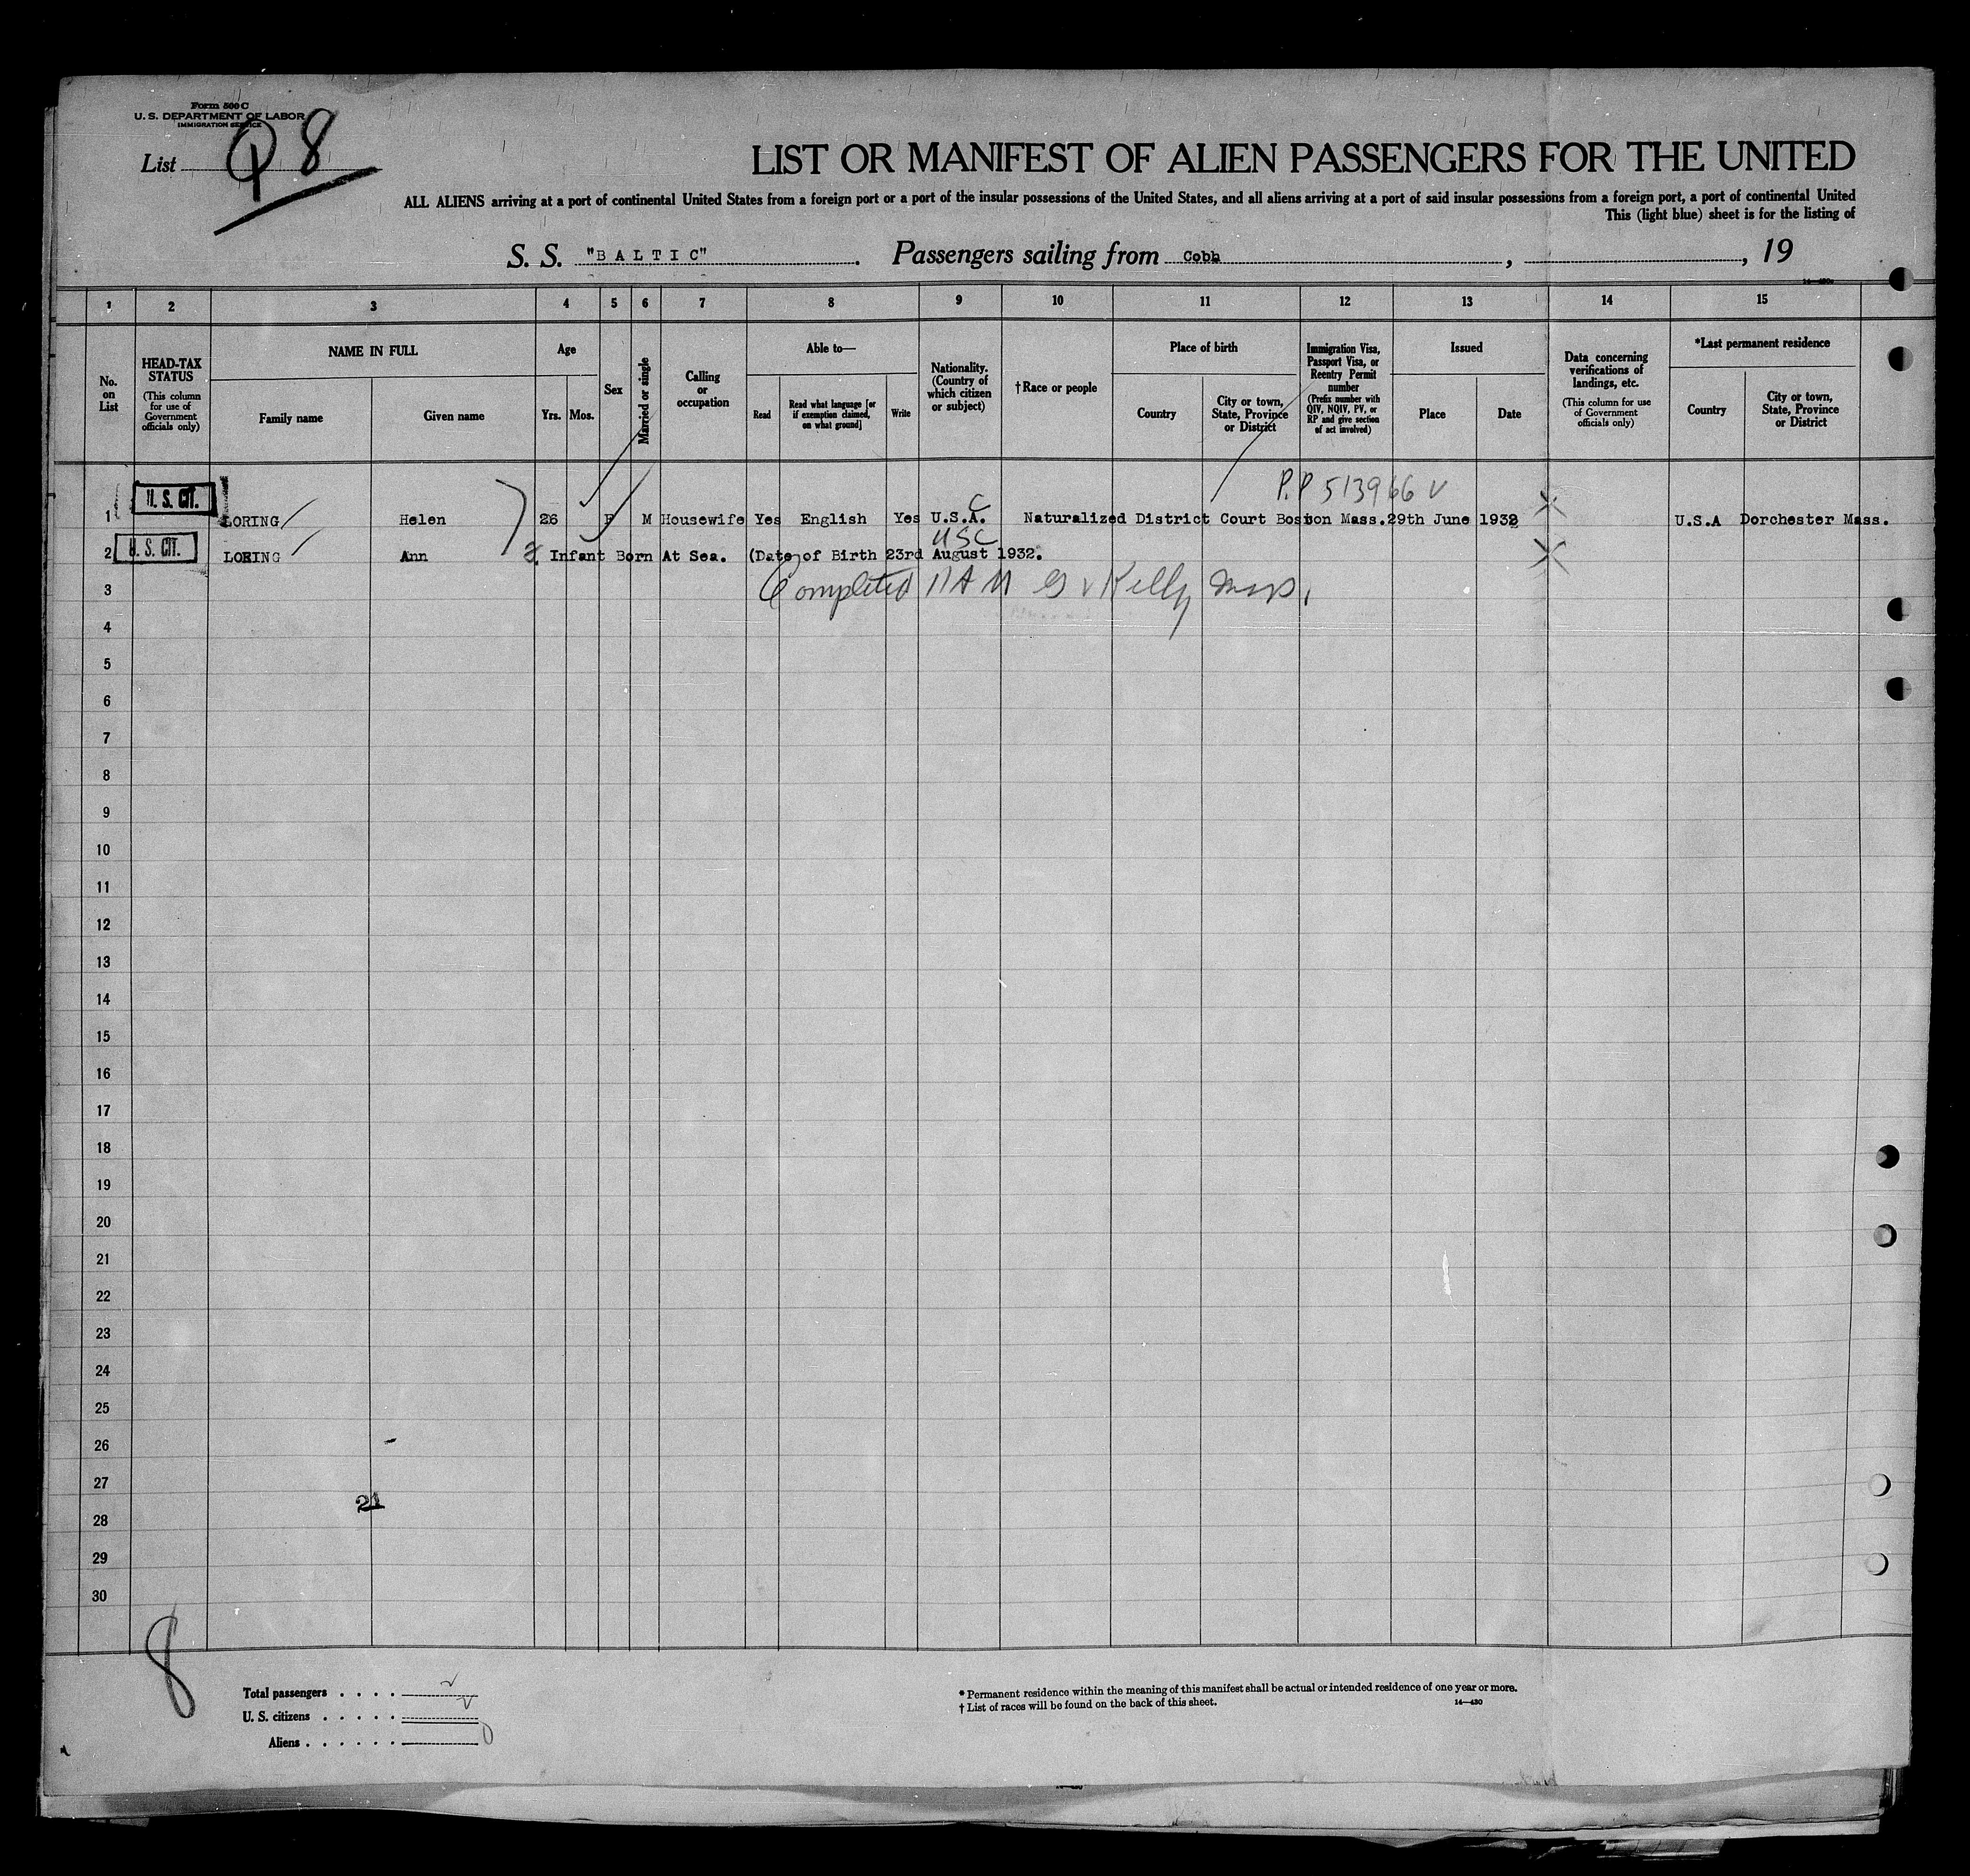 Form 500 C
U. S. DEPARTMENT OF LABOR
IMMIGRATION SERVICE
List 8
LIST OR MANIFEST OF ALIEN PASSENGERS FOR THE UNITED
ALL ALIENS arriving at a port of continental United States from a foreign port or a port of the insular possessions of the United States, and all aliens arriving at a port of said insular possessions from a foreign port, a port of continental United
This (light blue) sheet is for the listing of
S. S. "BALTIC". Passengers sailing from Cobh, , 19
1 2 3 4 5 6 7 8 9 10 11 12 13 14 15
No. on List
HEAD-TAX STATUS
(This column for use of Government officials only)
NAME IN FULL
Family name
Given name
Age
Yrs. Mos.
Sex
Married or single
Calling or occupation
Able to—
Read
Read what language [or if exemption claimed, on what ground]
Write
Nationality. (Country of which citizen or subject)
†Race or people
Place of birth
Country
City or town, State, Province or District
Immigration Visa, Passport Visa, or Reentry Permit number
(Prefix number with QIV, NQIV, PV, or RP and give section of act involved)
Issued
Place
Date
Data concerning verifications of landings, etc.
(This column for use of Government officials only)
*Last permanent residence
Country
City or town, State, Province or District
P.P 513966
1 U. S. CIT. LORING Helen 26 F M Housewife Yes English Yes U.S.A. C Naturalized District Court Boston Mass. 29th June 1932 U.S.A Dorchester Mass.
USC
2 U. S. CIT. LORING Ann Infant Born At Sea. (Date of Birth 23rd August 1932.
3 Completed Kelly
4
5
6
7
8
9
10
11
12
13
14
15
16
17
18
19
20
21
22
23
24
25
26
27
21
28
29
30
8
Total passengers . . . .
U. S. citizens . . . . .
Aliens . . . . . . 0
* Permanent residence within the meaning of this manifest shall be actual or intended residence of one year or more.
† List of races will be found on the back of this sheet. 14—430